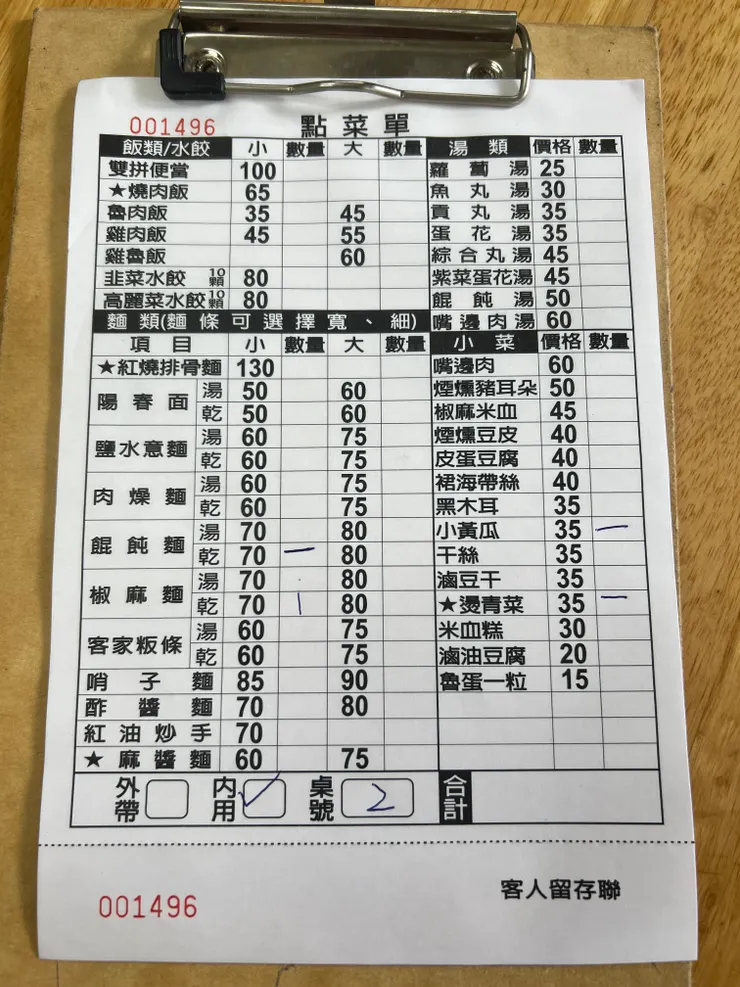 001496
點菜單
飯類/水餃 小 數量 大 數量
雙拼便當 100
★燒肉飯 65
魯肉飯 35 45
雞肉飯 45 55
雞魯飯 60
韭菜水餃10顆 80
高麗菜水餃10顆 80
麵類(麵條可選擇寬、細)
項目 小 數量 大 數量
★紅燒排骨麵 130
陽春面 湯 50 60
乾 50 60
鹽水意麵 湯 60 75
乾 60 75
肉燥麵 湯 60 75
乾 60 75
餛飩麵 湯 70 80
乾 70 一 80
椒麻麵 湯 70 80
乾 70 | 80
客家粄條 湯 60 75
乾 60 75
哨子麵 85 90
酢醬麵 70 80
紅油炒手 70
★麻醬麵 60 75
湯類 價格 數量
蘿蔔湯 25
魚丸湯 30
貢丸湯 35
蛋花湯 35
綜合丸湯 45
紫菜蛋花湯 45
餛飩湯 50
嘴邊肉湯 60
小菜 價格 數量
嘴邊肉 60
煙燻豬耳朵 50
椒麻米血 45
煙燻豆皮 40
皮蛋豆腐 40
裙海帶絲 40
黑木耳 35
小黃瓜 35 一
干絲 35
滷豆干 35
★燙青菜 35 一
米血糕 30
滷油豆腐 20
魯蛋一粒 15
外帶 內用 ✓ 桌號 2 合計
客人留存聯
001496